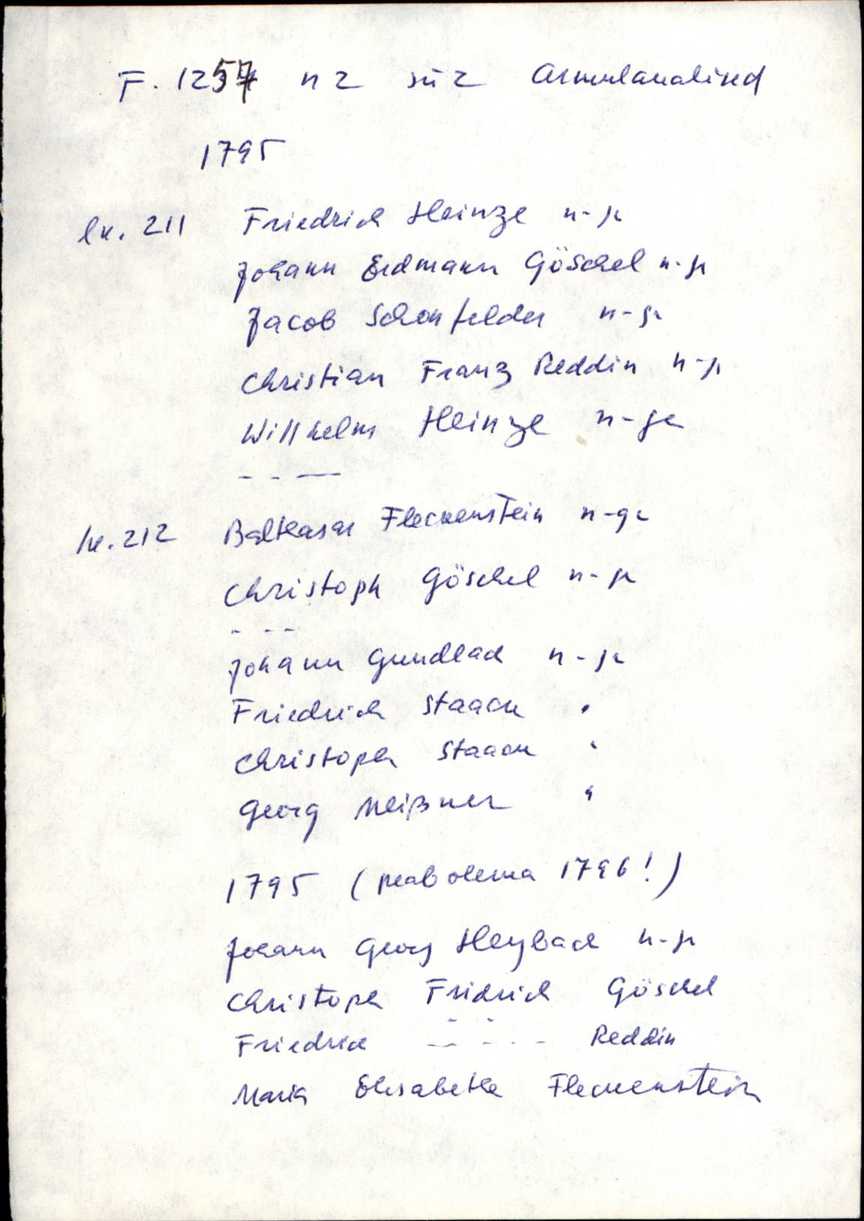 F. 1257 n 2 sü 2 Armulaualised
1795
lk. 211 Friedrich Heinze n-p
Johann Erdmann Göschel n-p
Jacob Schonfelder n-p
Christian Franz Reddin n-p
Willhelm Heinze n-p
- - —
lk. 212 Balthasar Fleckenstein n-p
Christoph Göschel n-p
- - -
Johann Grundlach n-p
Friedrich Staack "
Christoph Staack "
Georg Meißner "
1795 (peab olema 1796!)
Johann Georg Heybach n-p
Christoph Fridrich Göschel
Friedrich - - - - - Reddin
Maria Elisabethe Fleckenstein